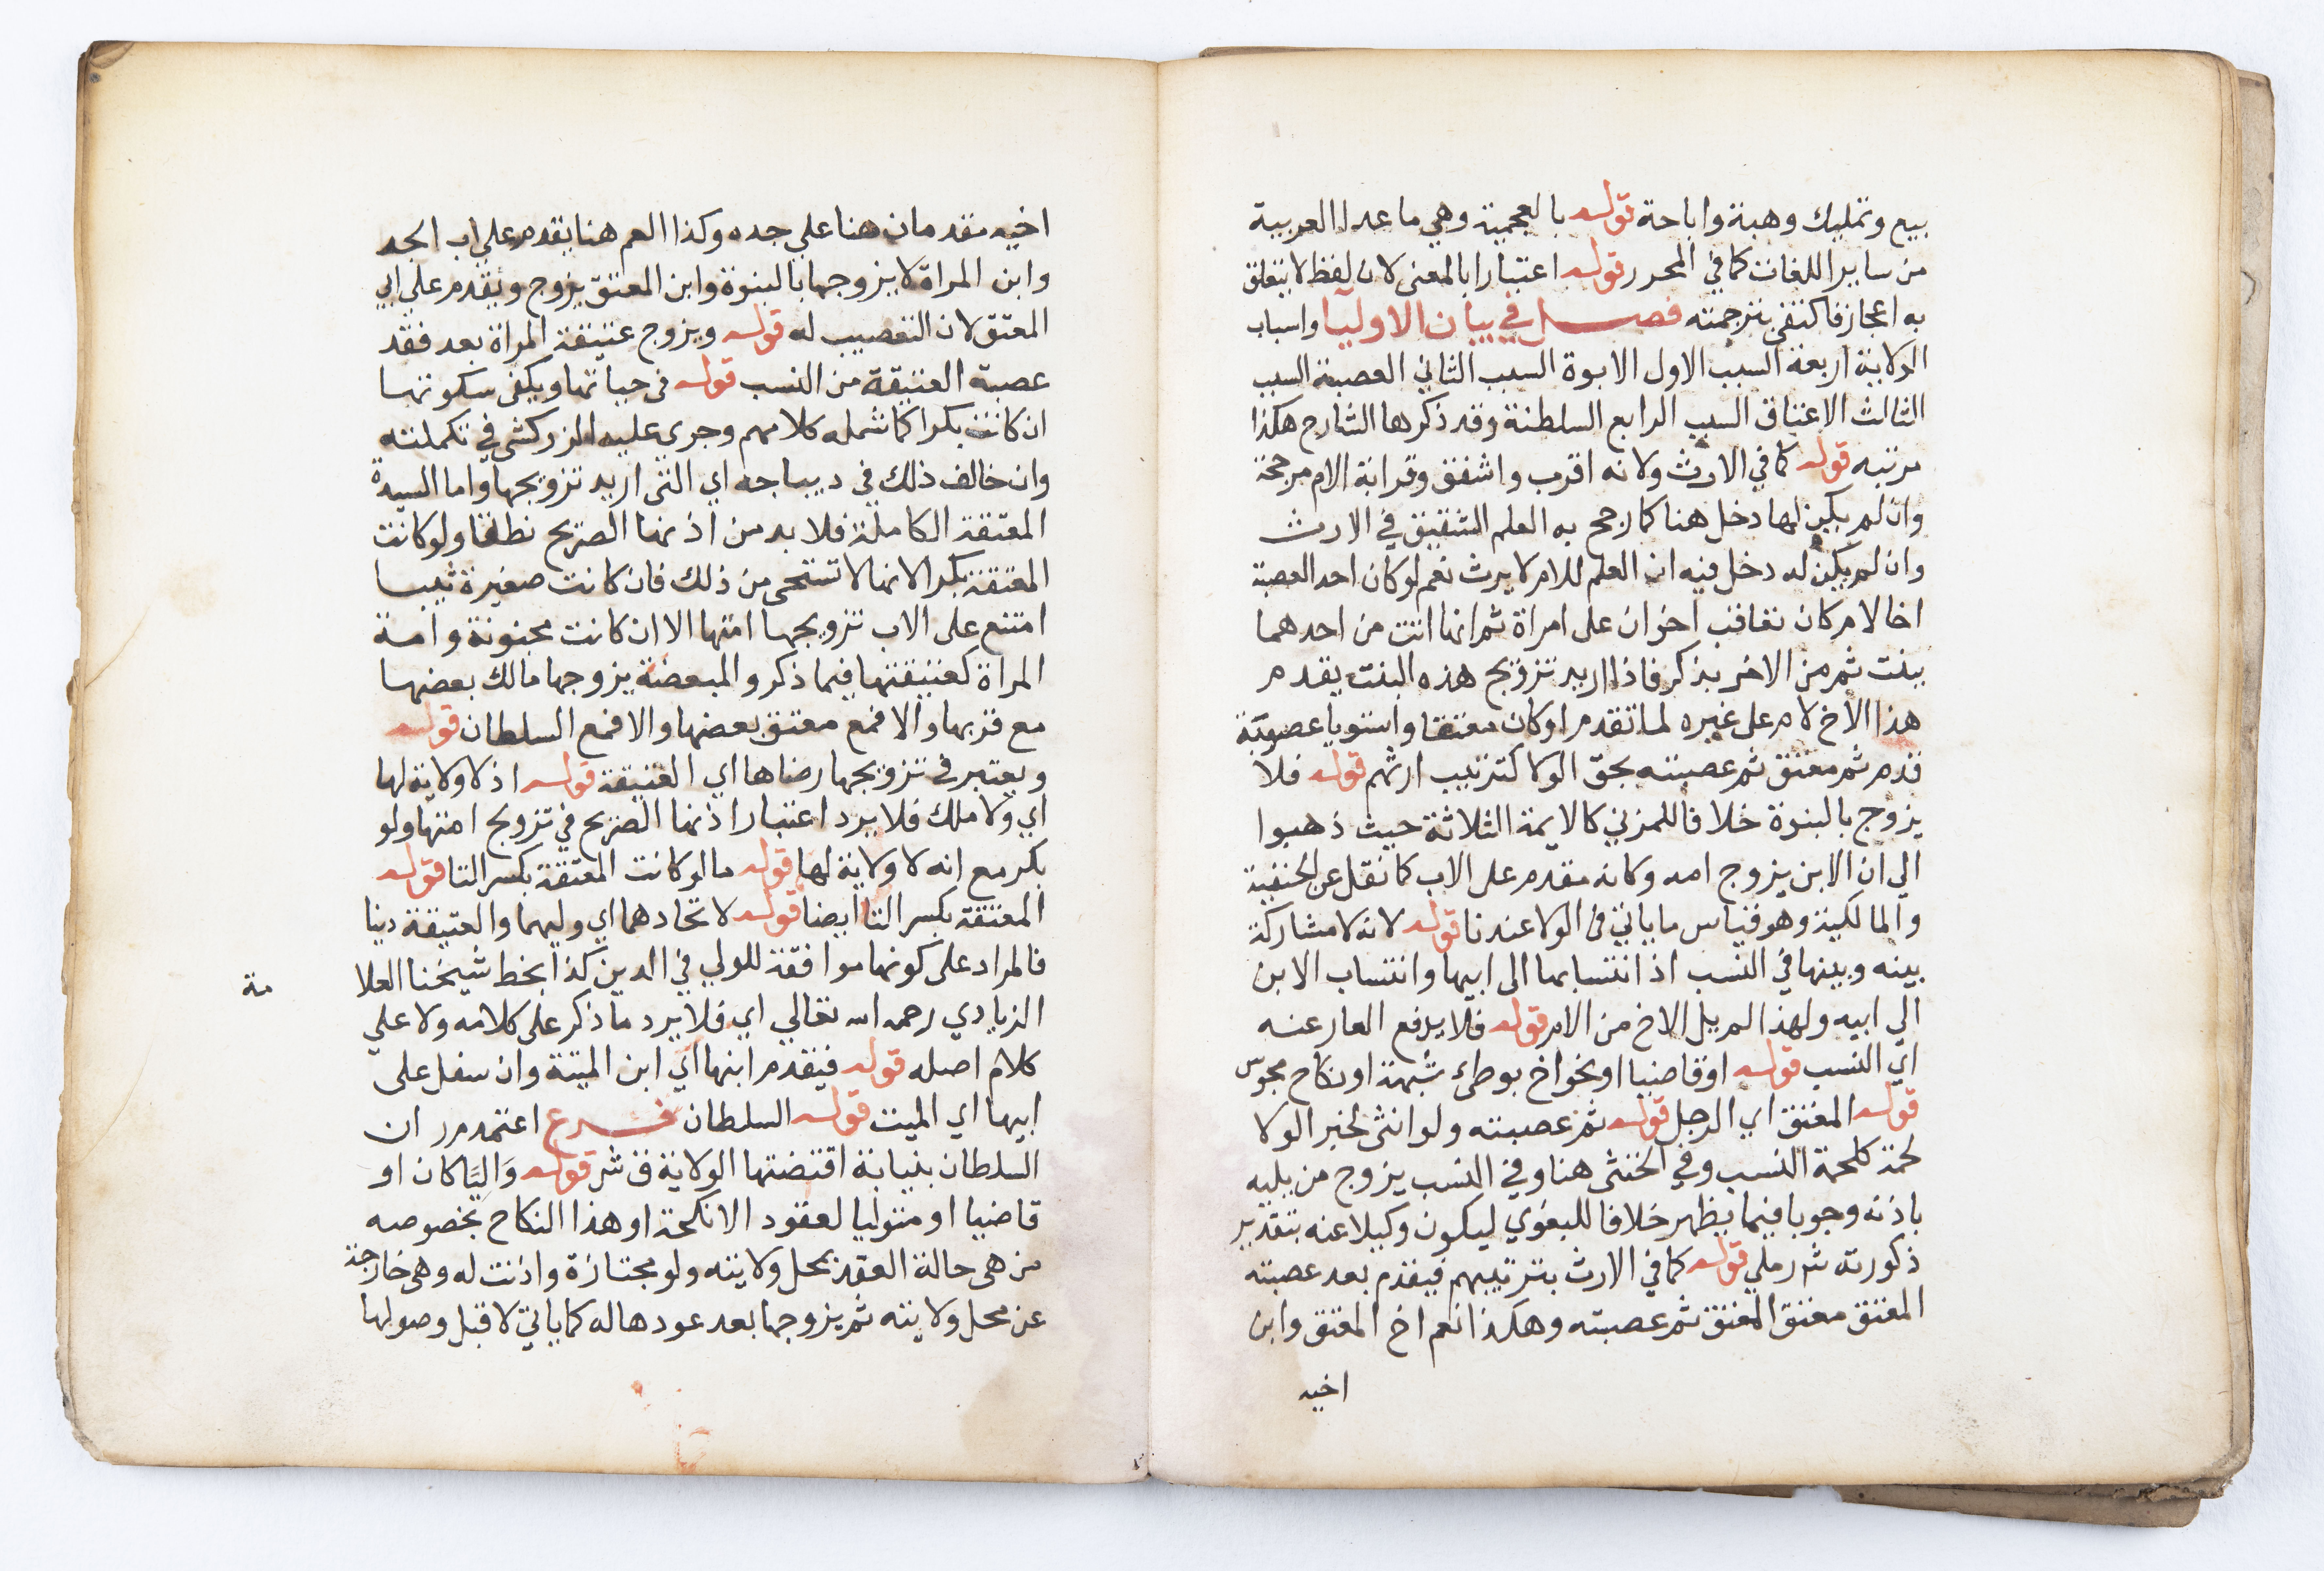 بيع وتمليك وهبة واباحة قوله بالعجمية وهي ما عدا العربية
من ساير اللغات كما في المحرر قوله اعتبارا بالمعنى لان لفظ لا يتعلق
به اعجاز فاكتفي بترجمته فصل في بيان الاوليا واسباب
الولاية اربعة السبب الاول الابوة السبب الثاني العصبة السبب
الثالث الاعتاق السبب الرابع السلطنة وقد ذكرها الشارح هكذا
مرتبه قوله كما في الارث ولانه اقرب واشفق وقرابة الام مرجحة
وان لم يكن لها دخل هنا كما رجح به العلم الشقيق في الارث
وان لم يكن له دخل فيه اذ العلم للام لا يرث نعم لو كان احد العصبة
اخا لام كان تعاقب اخوان على امراة ثم انها اتت من احدهما
ببنت ثم من الاخر بذكر فاذا اريد تزويج هذه البنت يقدم
هذا الاخ لام على غيره لما تقدم او كان معتقا واستويا عصوبة
قدم ثم معتق ثم عصبته بحق الولا كترتيب ارثهم قوله فلا
يزوج بالبنوة خلافا للمزني كالايمة الثلاثة حيث ذهبوا
الي ان الابن يزوج امه وكانه مقدم على الاب كما نقل عن الحنفية
والمالكية وهو قياس ما ياتي في الولا عندنا قوله لانه لا مشاركة
بينه وبينها في النسب اذ انتسابها الى ابيها وانتساب الابن
الي ابيه ولهذا لم يل الاخ من الام قوله فلا يدفع العار عنه
اي النسب قوله او قاضيا او نحو اخ بوطئ شبهة او نكاح مجوس
قوله المعتق اي الرجل قوله ثم عصبته ولو انثى لخبر الولا
لحمة كلحمة النسب وفي الخنثى هنا وفي النسب يزوج من يليه
باذنه وجوبا فيما يظهر خلافا للبغوي ليكون وكيلا عنه بتقدير
ذكورته شر رملي قوله كما في الارث بترتيبهم فيقدم بعد عصبته
المعتق معتق المعتق ثم عصبته وهكذا نعم اخ المعتق وابن
اخيه
اخيه مقدمان هنا علي جده وكذا العم هنا يقدم علي اب الجد
وابن المراة لا يزوجها بالبنوة وابن المعتق يزوج ويقدم علي ابي
المعتق لان التعصيب له قوله ويزوج عتيقة المراة بعد فقد
عصبة العتيقة من النسب قوله في حياتها ويكفى سكوتها
ان كانت بكرا كما شمله كلامهم وجري عليه الزركشي في تكملته
وان خالف ذلك في ديباجه اي التى اريد تزويجها واما السيدة
المعتقة الكاملة فلا بد من اذنها الصريح نطقا ولو كانت
المعتقة بكرا لانها لا تستحي من ذلك فان كانت صغيرة ثيبا
امتنع على الاب تزويجها امتها الا ان كانت مجنونة وامة
المراة كعتيقتها فيما ذكر والمبعضة يزوجها مالك بعضها
مع قريبها والا فمع معتق بعضها والا فمع السلطان قوله
ويعتبر في تزويجها رضاها اي العتيقة قوله اذ لا ولاية لها
اي ولا ملك فلا يرد اعتبار اذنها الصريح في تزويج امتها ولو
بكر مع انه لا ولاية لها قوله ما لو كانت المعتقة بكسر التا قوله
المعتقة بكسر التا ايضا قوله لاتحادهما اي وليهما والعتيقة دينا
فالمراد على كونها موافقة للولي في الدين كذا بخط شيخنا العلا
مة
الزيادي رحمه الله تعالي اي فلا يرد ما ذكر على كلامه ولا علي
كلام اصله قوله فيقدم ابنها اي ابن الميتة وان سفل على
ابيها اي الميت قوله السلطان فرع اعتمد مر ان
السلطان بنيابة اقتضتها الولاية ق شر قوله واليا كان او
قاضيا او متوليا لعقود الانكحة او هذا النكاح بخصوصه
من هى حالة العقد بمحل ولايته ولو مجتازة واذنت له وهى خارجة
عن محل ولايته ثم يزوجها بعد عودها له كما ياتي لا قبل وصولها